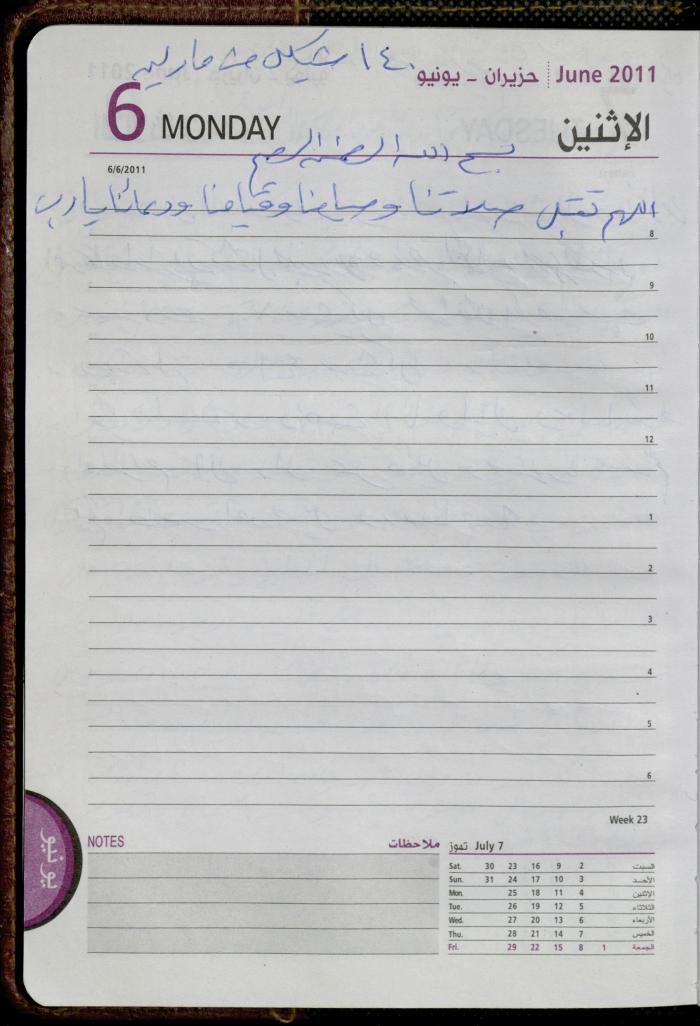 ١٤٠ شيكل من مارلين
حزيران - يونيو June 2011
6 MONDAY الإثنين
بسم الله الرحمن الرحيم
6/6/2011
اللهم تقبل صلاتنا وصيامنا وقيامنا ودعائنا يا رب
8
9
10
11
12
1
2
3
4
5
6
Week 23
يونيو
NOTES ملاحظات
تموز July 7
Sat. 30 23 16 9 2 السبت
Sun. 31 24 17 10 3 الأحد
Mon. 25 18 11 4 الإثنين
Tue. 26 19 12 5 الثلاثاء
Wed. 27 20 13 6 الأربعاء
Thu. 28 21 14 7 الخميس
Fri. 29 22 15 8 1 الجمعة